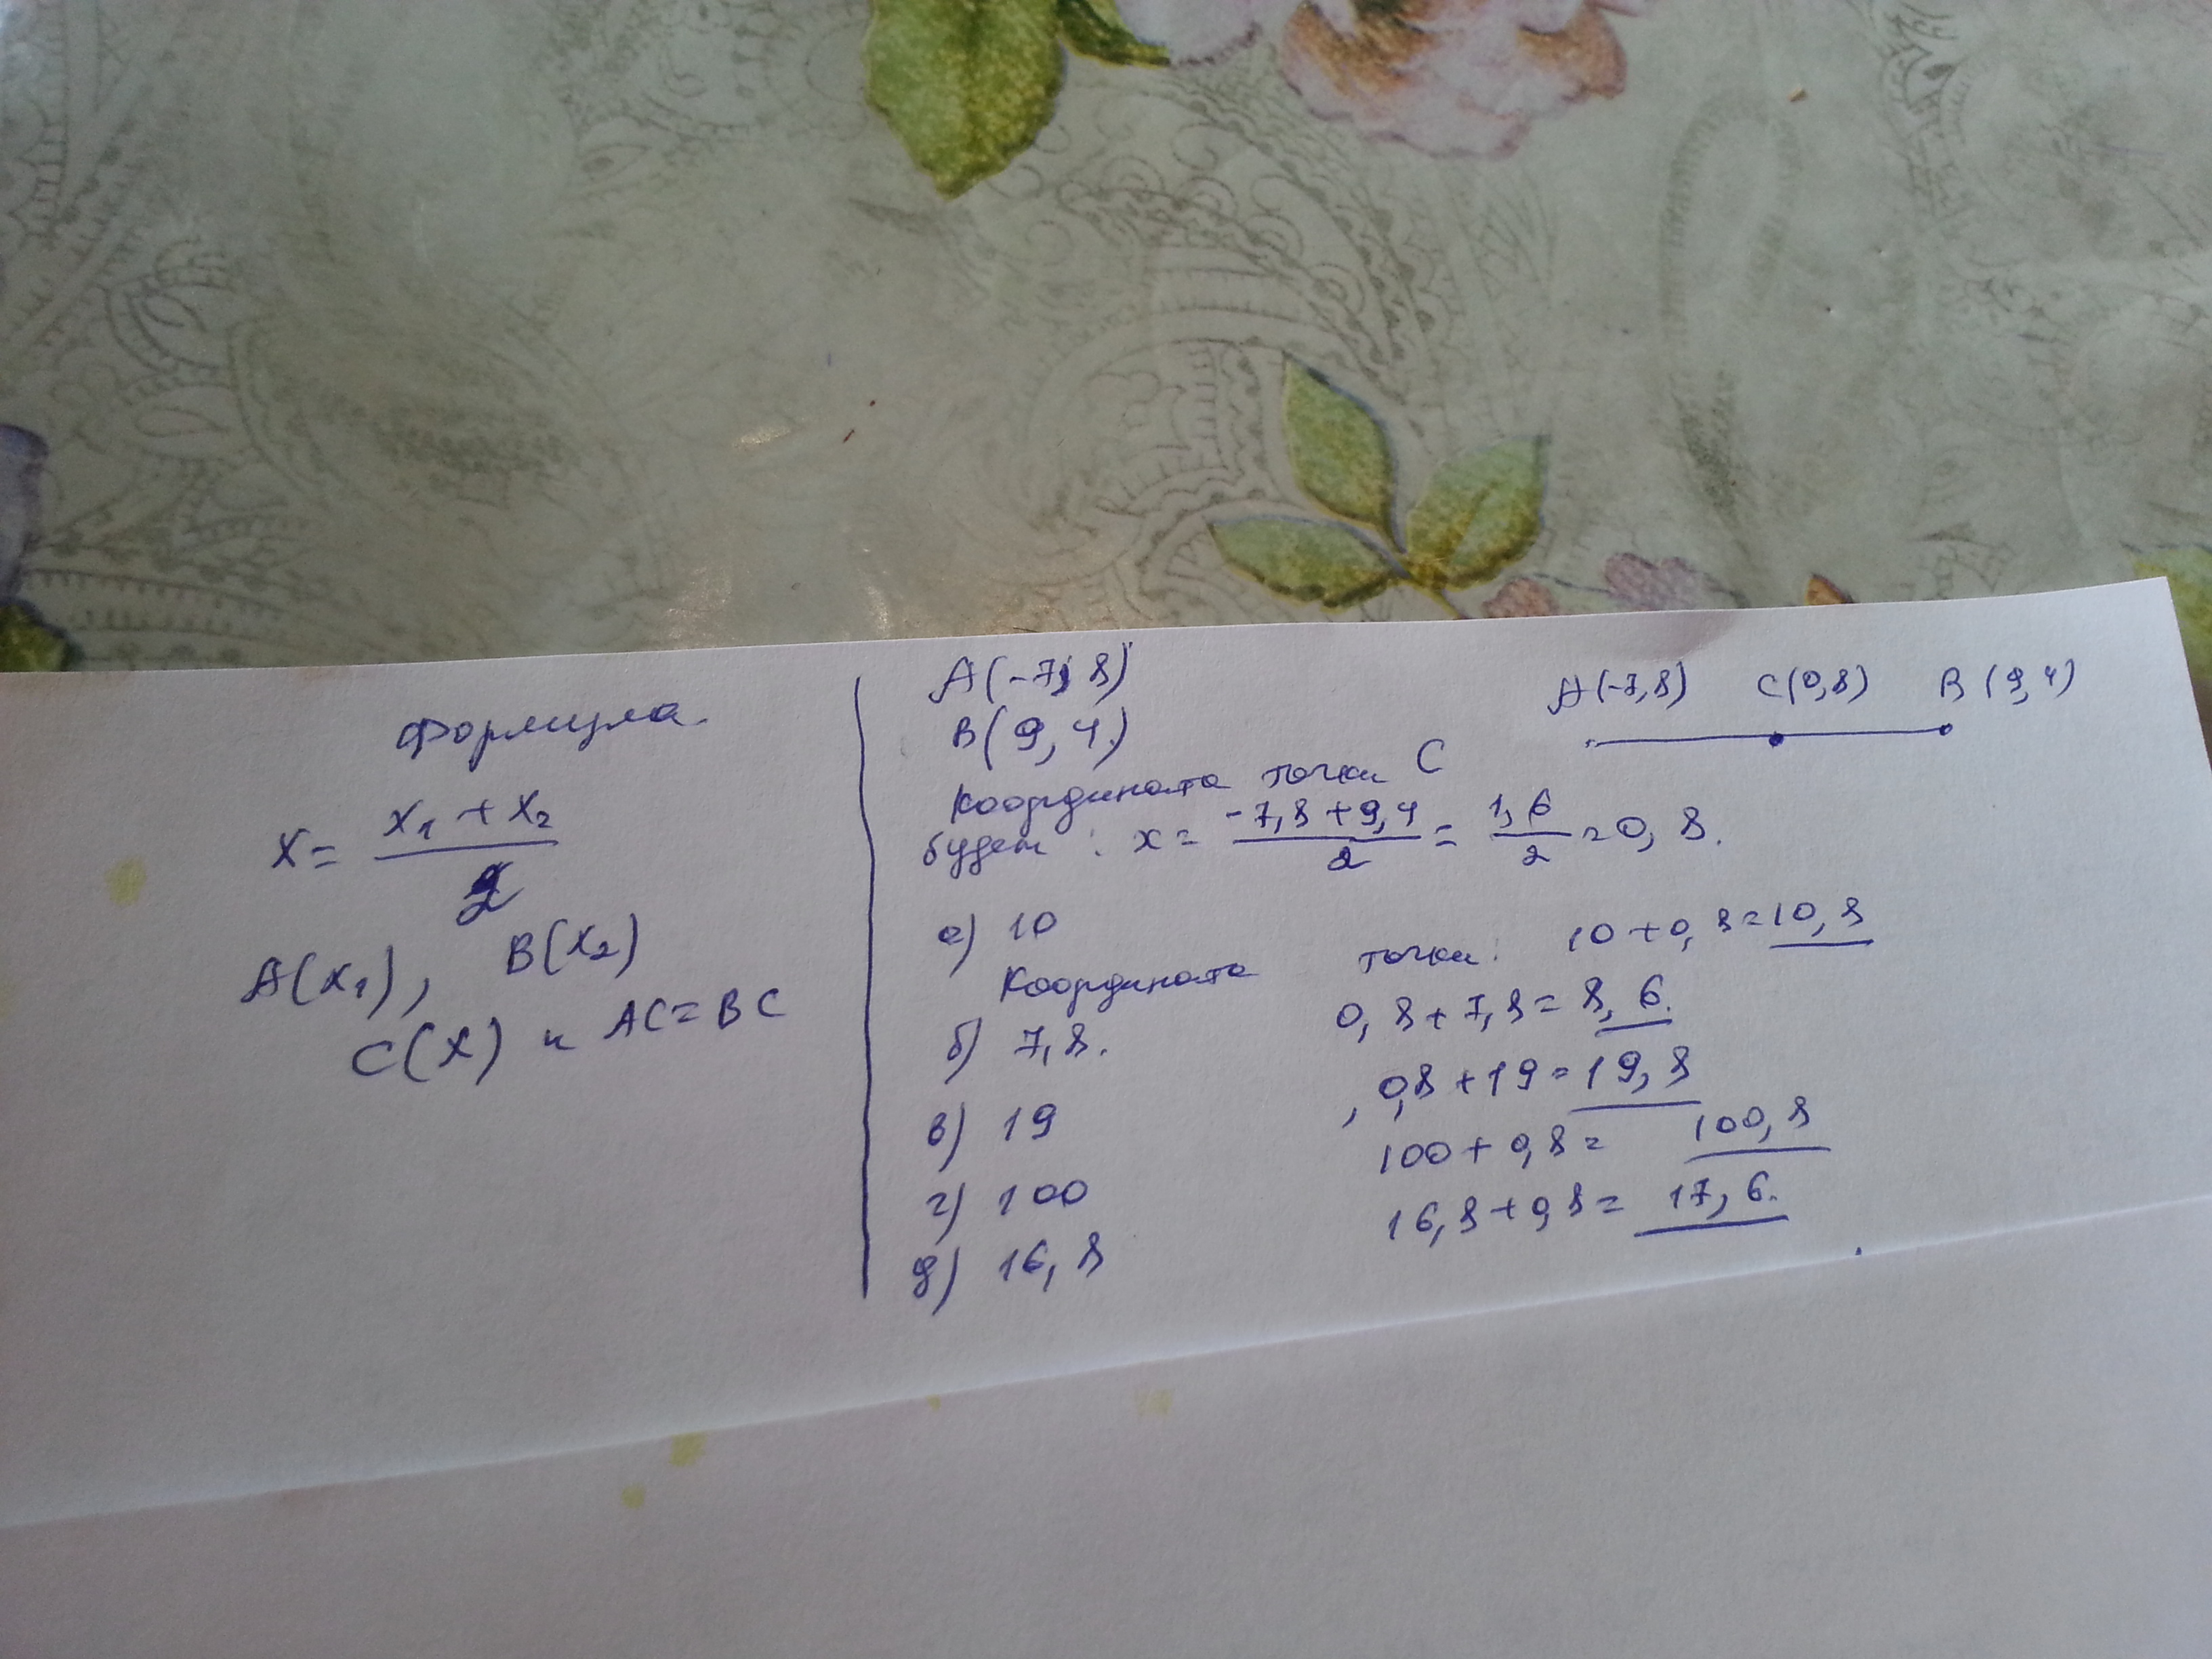 Формула.
x = (x₁ + x₂) / 2
A(x₁), B(x₂)
C(x) и AC = BC
A(-7,8)
B(9,4)
A(-7,8) C(0,8) B(9,4)
Координата точки C
будет: x = (-7,8 + 9,4) / 2 = 1,6 / 2 = 0,8.
а) 10
Координата точки: 10 + 0,8 = 10,8
б) 7,8. 0,8 + 7,8 = 8,6.
в) 19 , 0,8 + 19 = 19,8
г) 100 100 + 0,8 = 100,8
д) 16,8 16,8 + 0,8 = 17,6.